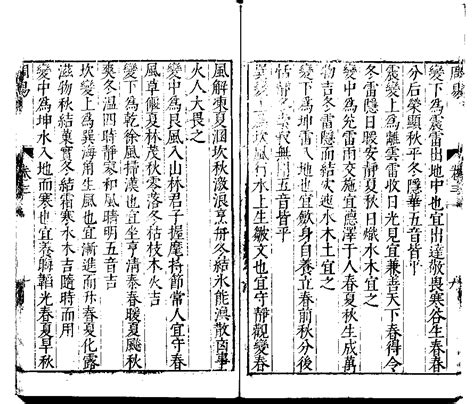 變下爲震雷出地中也宜出達敬畏寒谷生春春
分后榮顯秋平冬隱華五音皆平
震變上爲離雲雷收日光見宜兼善天下春得令
冬雷隱日暖安靜夏秋日熾水木宜之
變中爲兌雷雨交施宜應澤于人春夏秋生成萬
物吉冬雷隱而結灾速水木土宜之
變下爲坤雷入地也宜歛身自養立春前秋分後
恬靜春冬
水上生皺文也宜守靜觀變春
風解凍夏涸坎秋激浪烹舟冬結氷能渙散
火人大畏之
變中爲艮風入山林君子握麾持節常人宜守春
風草偃夏林茂秋零落冬枯枝木火吉
變下爲乾徐風掃漢也宜坐亨清泰春暖夏颷秋
爽冬溫四時靜寂和風晴明五音吉
坎變上爲巽海角生風也宜漸進而升春夏化露
滋物秋結菓實冬結霜寒水木吉隨時而用
變中爲坤水入地而寒也宜養晦韜光春夏旱秋